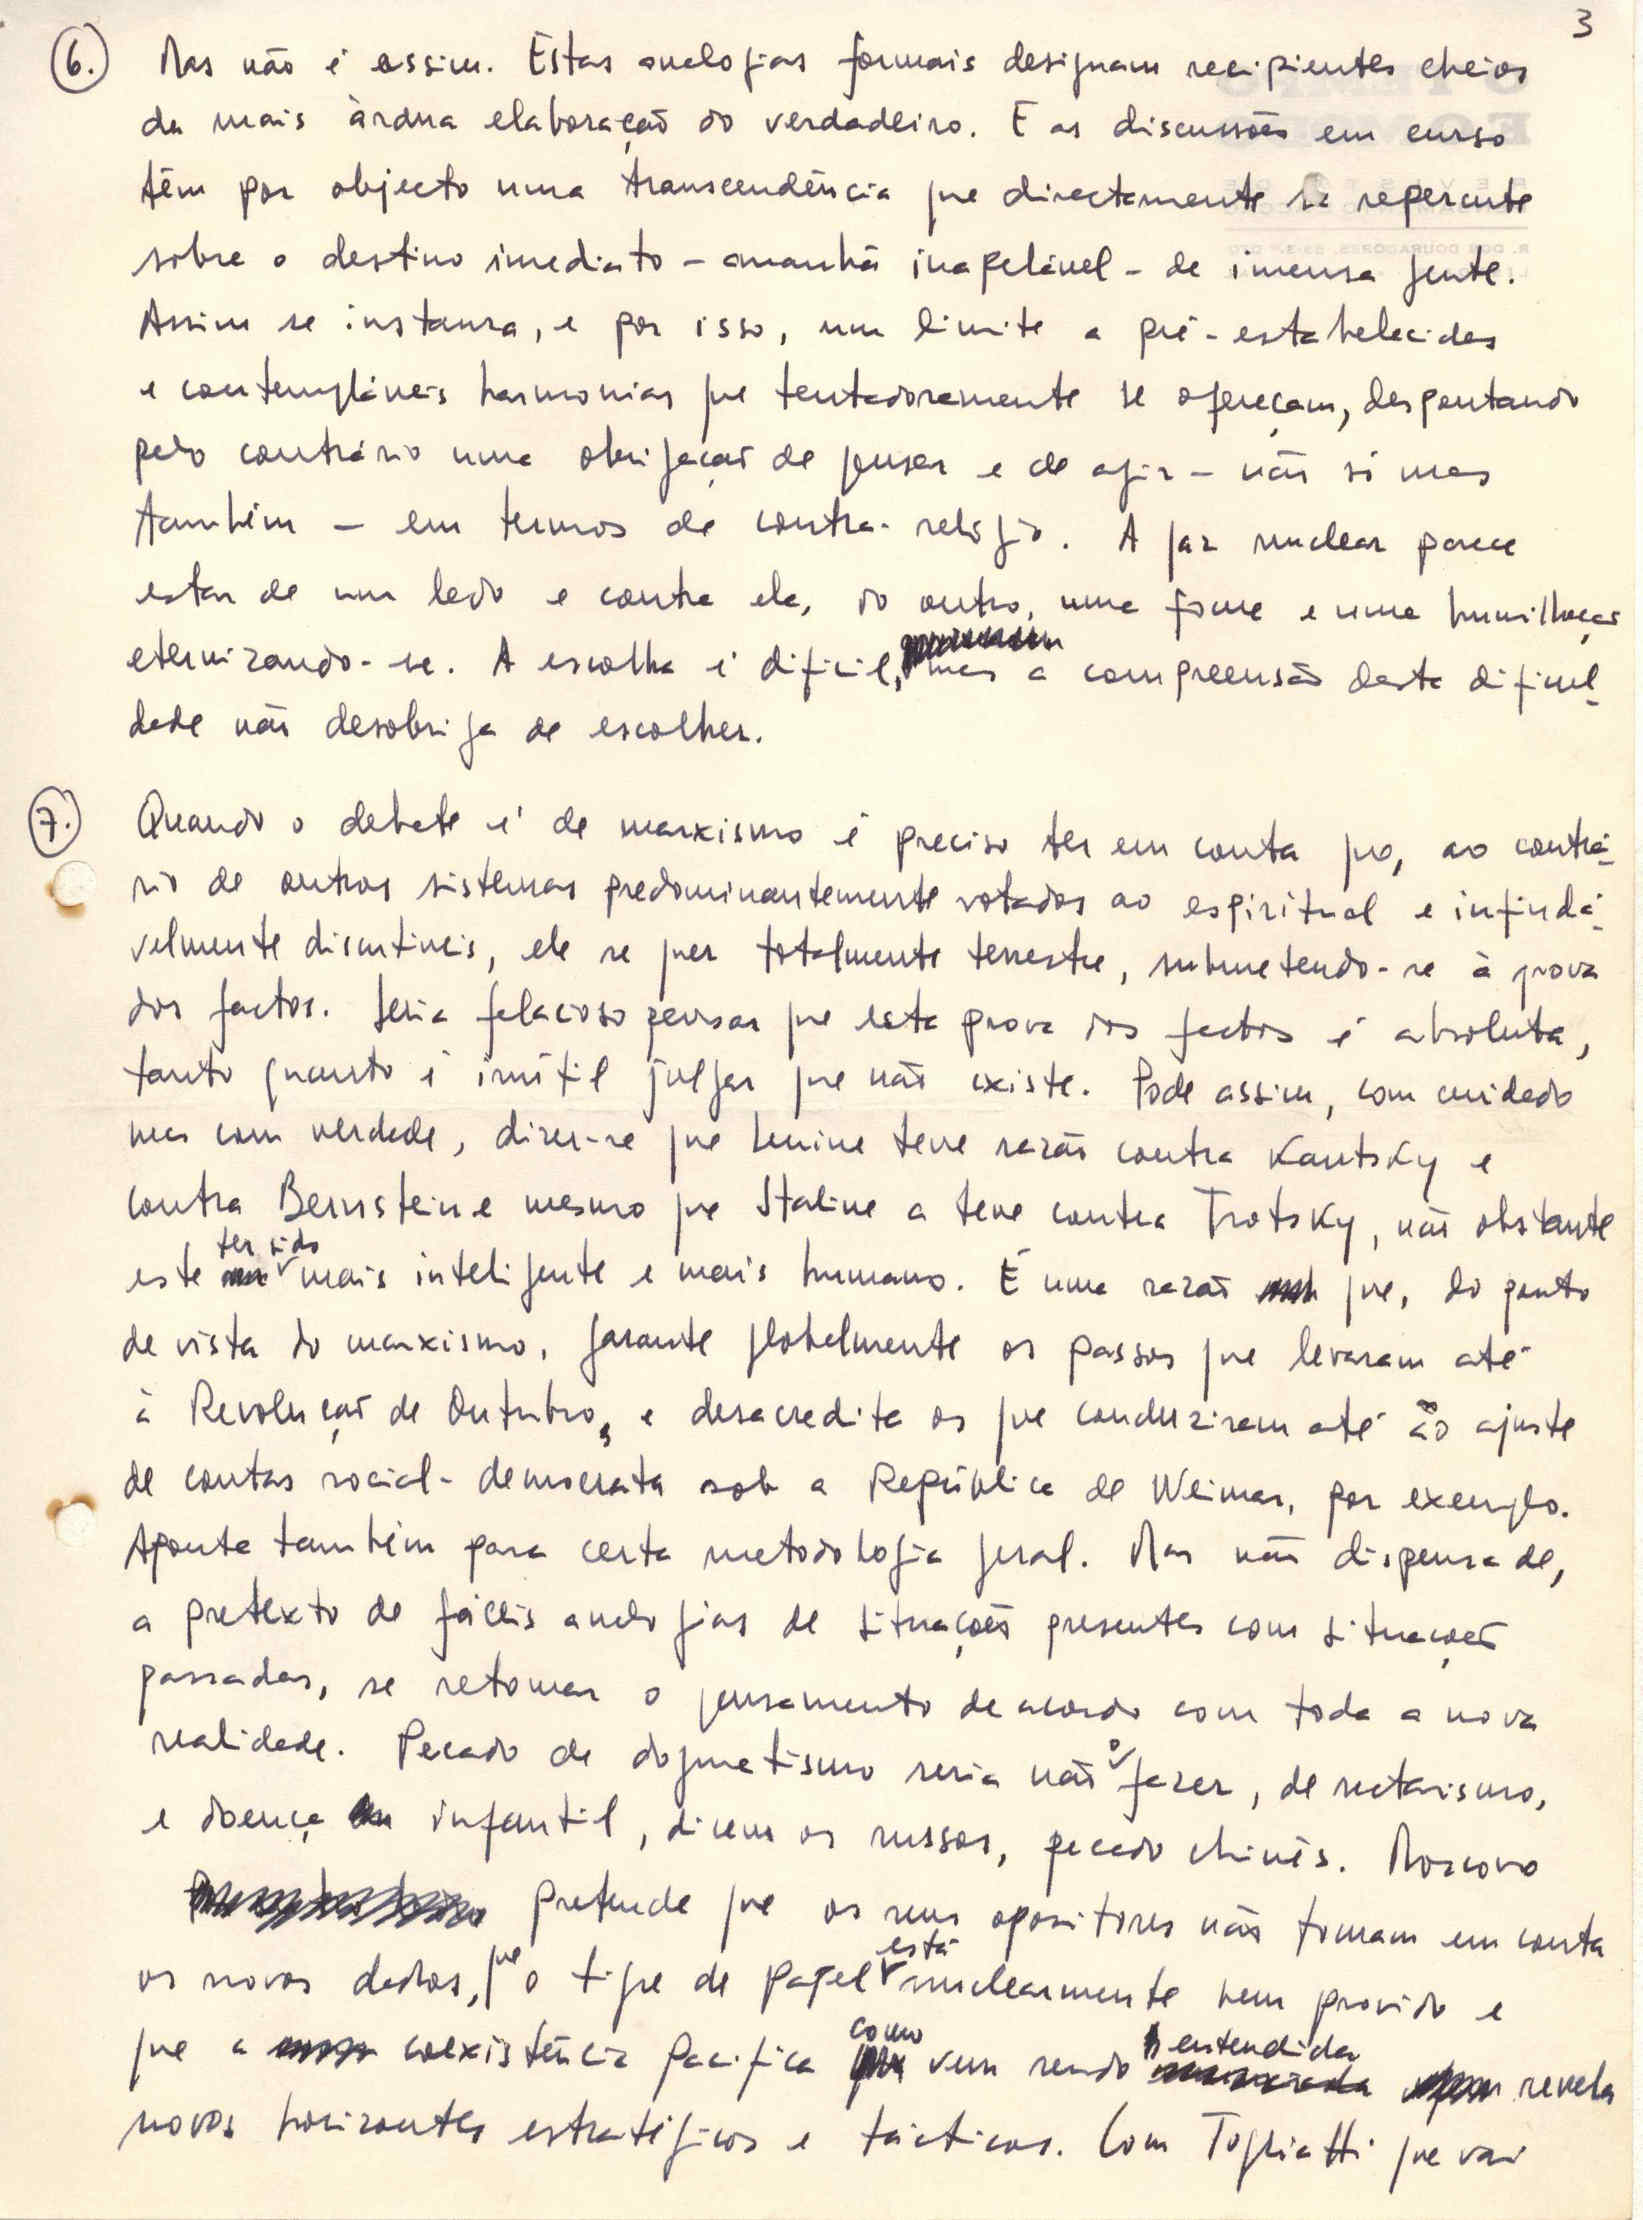 3
6. Mas não é assim. Estas analogias formais designam recipientes cheios
da mais àrdua elaboração do verdadeiro. E as discussões em curso
têm por objecto uma transcendência que directamente se repercute
sobre o destino imediato - amanhã inapelável - de imensa gente.
Assim se instaura, e por isso, um limite a pré-estabelecidas
e contempláveis harmonias que tentadoramente se ofereçam, despontando
pelo contrário uma obrigação de pensar e de agir - não só mas
também - em termos de contra-relógio. A paz nuclear parece
estar de um lado e contra ela, do outro, uma fome e uma humilhação
eternizando-se. A escolha é difícil, mas a compreensão desta dificul-
dade não desobriga de escolher.
7. Quando o debate é de marxismo é preciso ter em conta que, ao contrá-
rio de outros sistemas predominantemente votados ao espiritual e infindà-
velmente discutíveis, ele se quer totalmente terrestre, submetendo-se à prova
dos factos. Seria falacioso pensar que esta prova dos factos é absoluta,
tanto quanto é inútil julgar que não existe. Pode assim, com cuidado
mas com verdade, dizer-se que Lenine teve razão contra Kautsky e
contra Bernstein e mesmo que Staline a teve contra Trotsky, não obstante
este ter sido mais inteligente e mais humano. É uma razão que, do ponto
de vista do marxismo, garante globalmente os passos que levaram até
à Revolução de Outubro, e desacredita os que conduziram até ao ajuste
de contas social-democrata sob a República de Weimar, por exemplo.
Aponta também para certa metodologia geral. Mas não dispensa de,
a pretexto de fáceis analogias de situações presentes com situações
passadas, se retomar o pensamento de acordo com toda a nova
realidade. Pecado de dogmatismo seria não o fazer, de sectarismo,
e doença infantil, dizem os russos, pecado chinês. Moscovo
pretende que os seus opositores não tomam em conta
os novos dados, que o tigre de papel está nuclearmente bem provido e
que a coexistência pacífica como vem sendo entendida revela
novos horizontes estratégicos e tácticos. Com Togliatti que vai